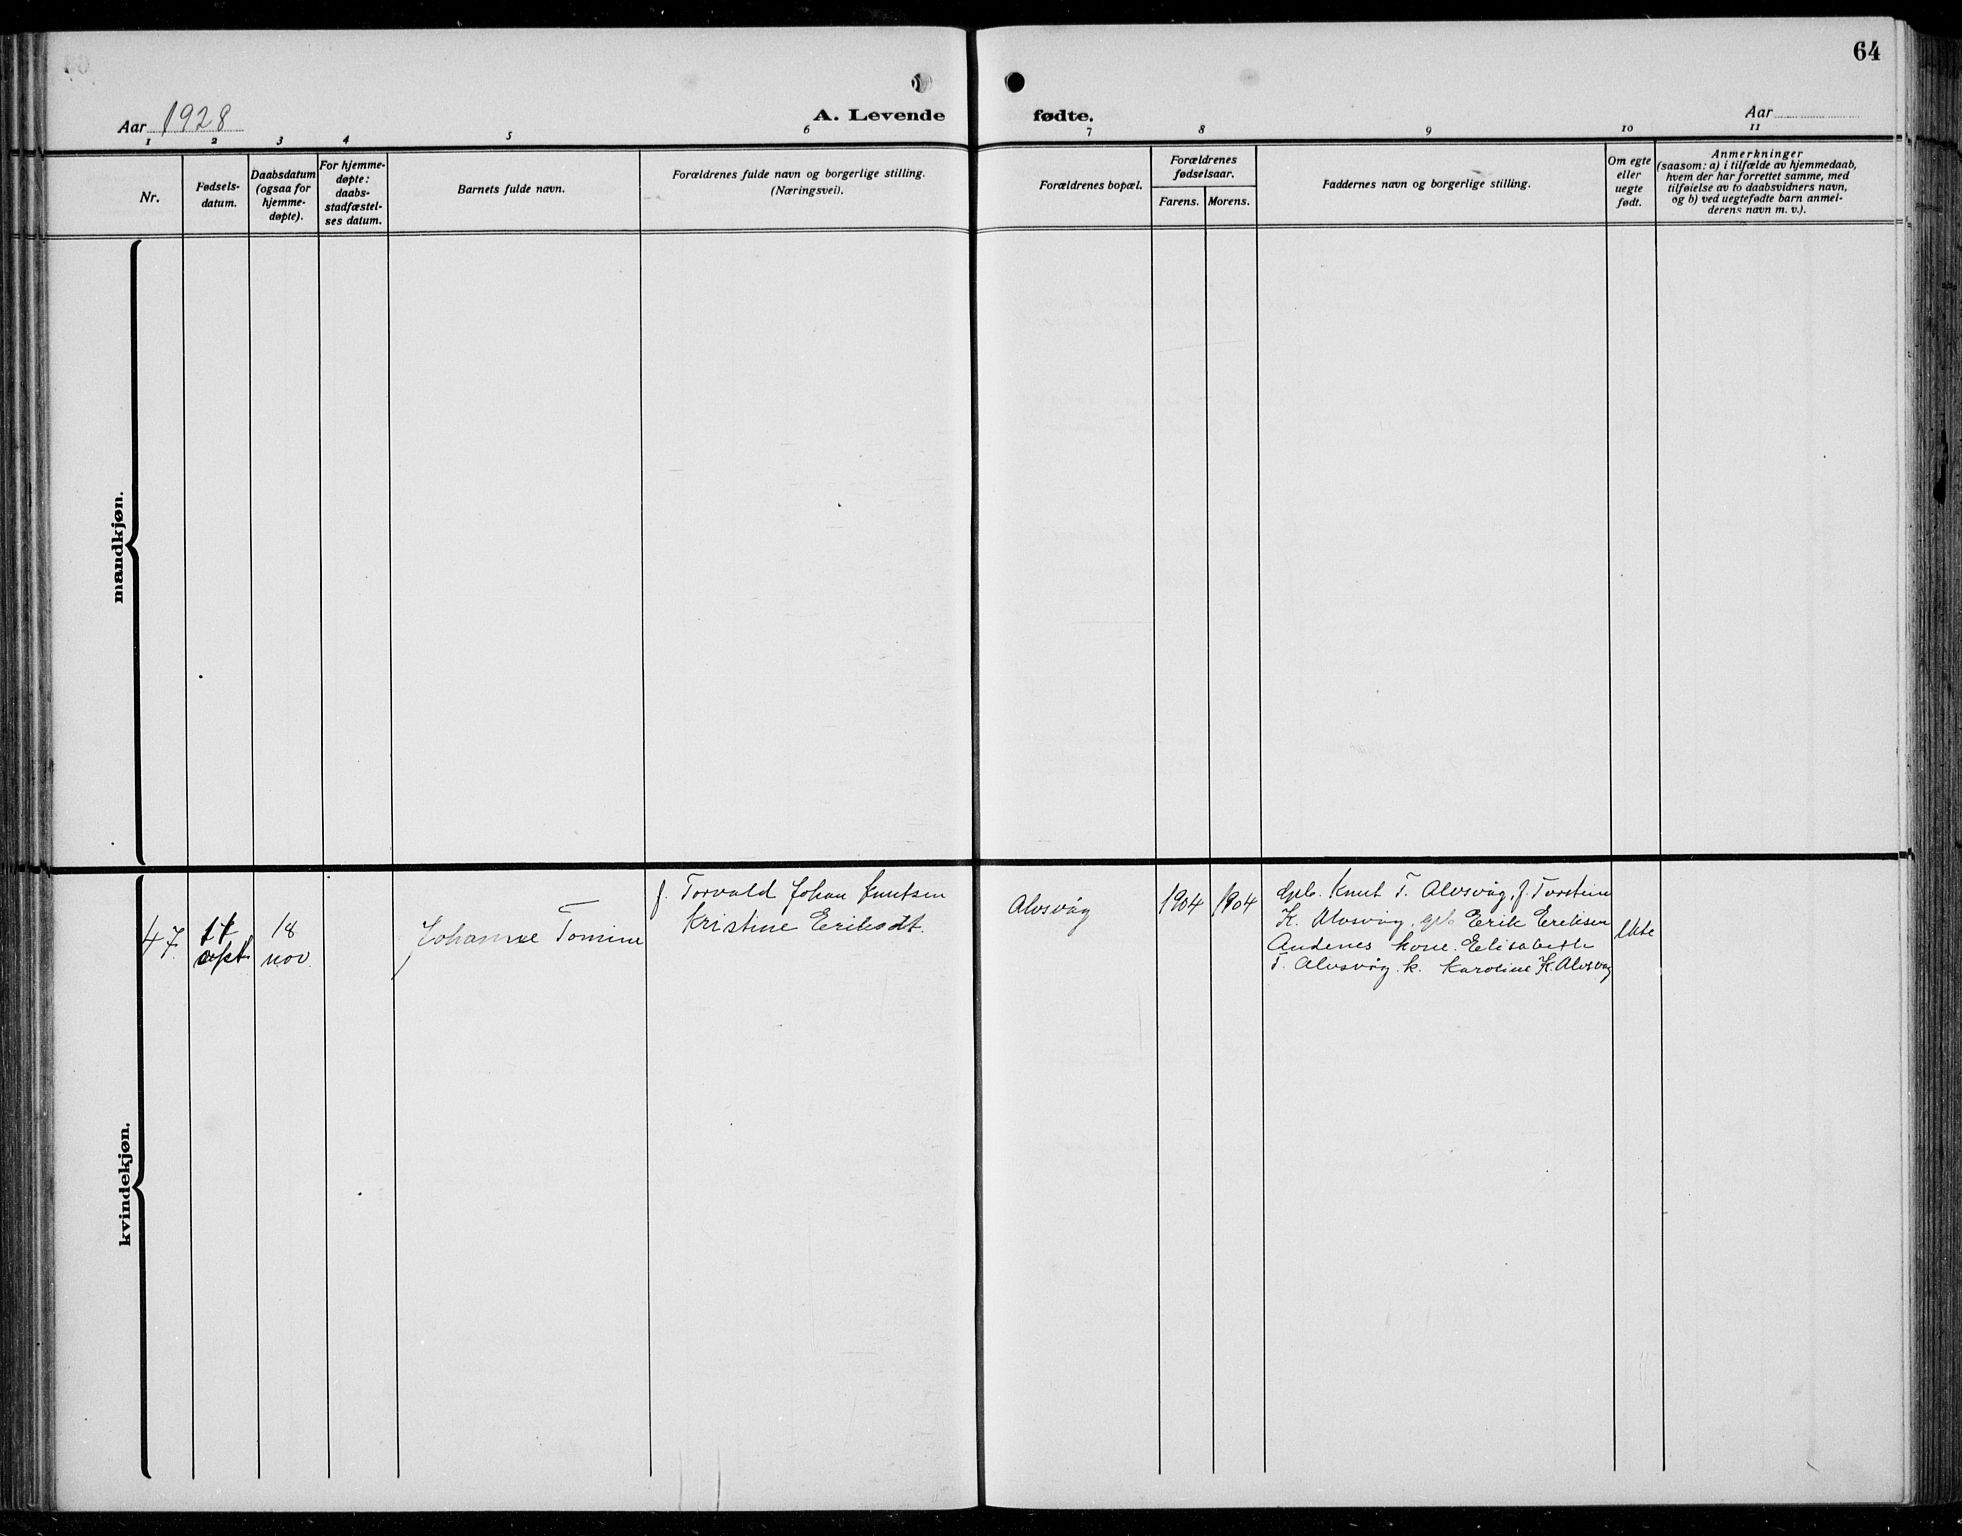 64
Aar 1928
A. Levende fødte.
Aar
1 2 3 4 5 6 7 8 9 10 11
Nr.
Fødsels-
datum.
Daabsdatum
(ogsaa for
hjemme-
døpte).
For hjemme-
døpte:
daabs-
stadfæstel-
ses datum.
Barnets fulde navn.
Forældrenes fulde navn og borgerlige stilling.
(Næringsvei).
Forældrenes bopæl.
Forældrenes
fødselsaar.
Farens. Morens.
Faddernes navn og borgerlige stilling.
Om egte
eller
uegte
født.
Anmerkninger
(saasom: a) i tilfælde av hjemmedaab,
hvem der har forrettet samme, med
tilføielse av to daabsvidners navn,
og b) ved uegtefødte barn anmel-
derens navn m. v.).
mandkjøn.
kvindekjøn.
47.
sept.
18
nov.
Johanne Tomine
f. Torvald Johan Knutsen
Kristine Eriksdt.
Alvsvåg
1904
1904
Gpb. Knut T. Alvsvåg, f. Torstein
K. Alvsvåg, gpb Erik Eriksen
Andenes kone Elisabeth
T. Alvsvåg. k. Karoline K. Alvsvåg
Ekte